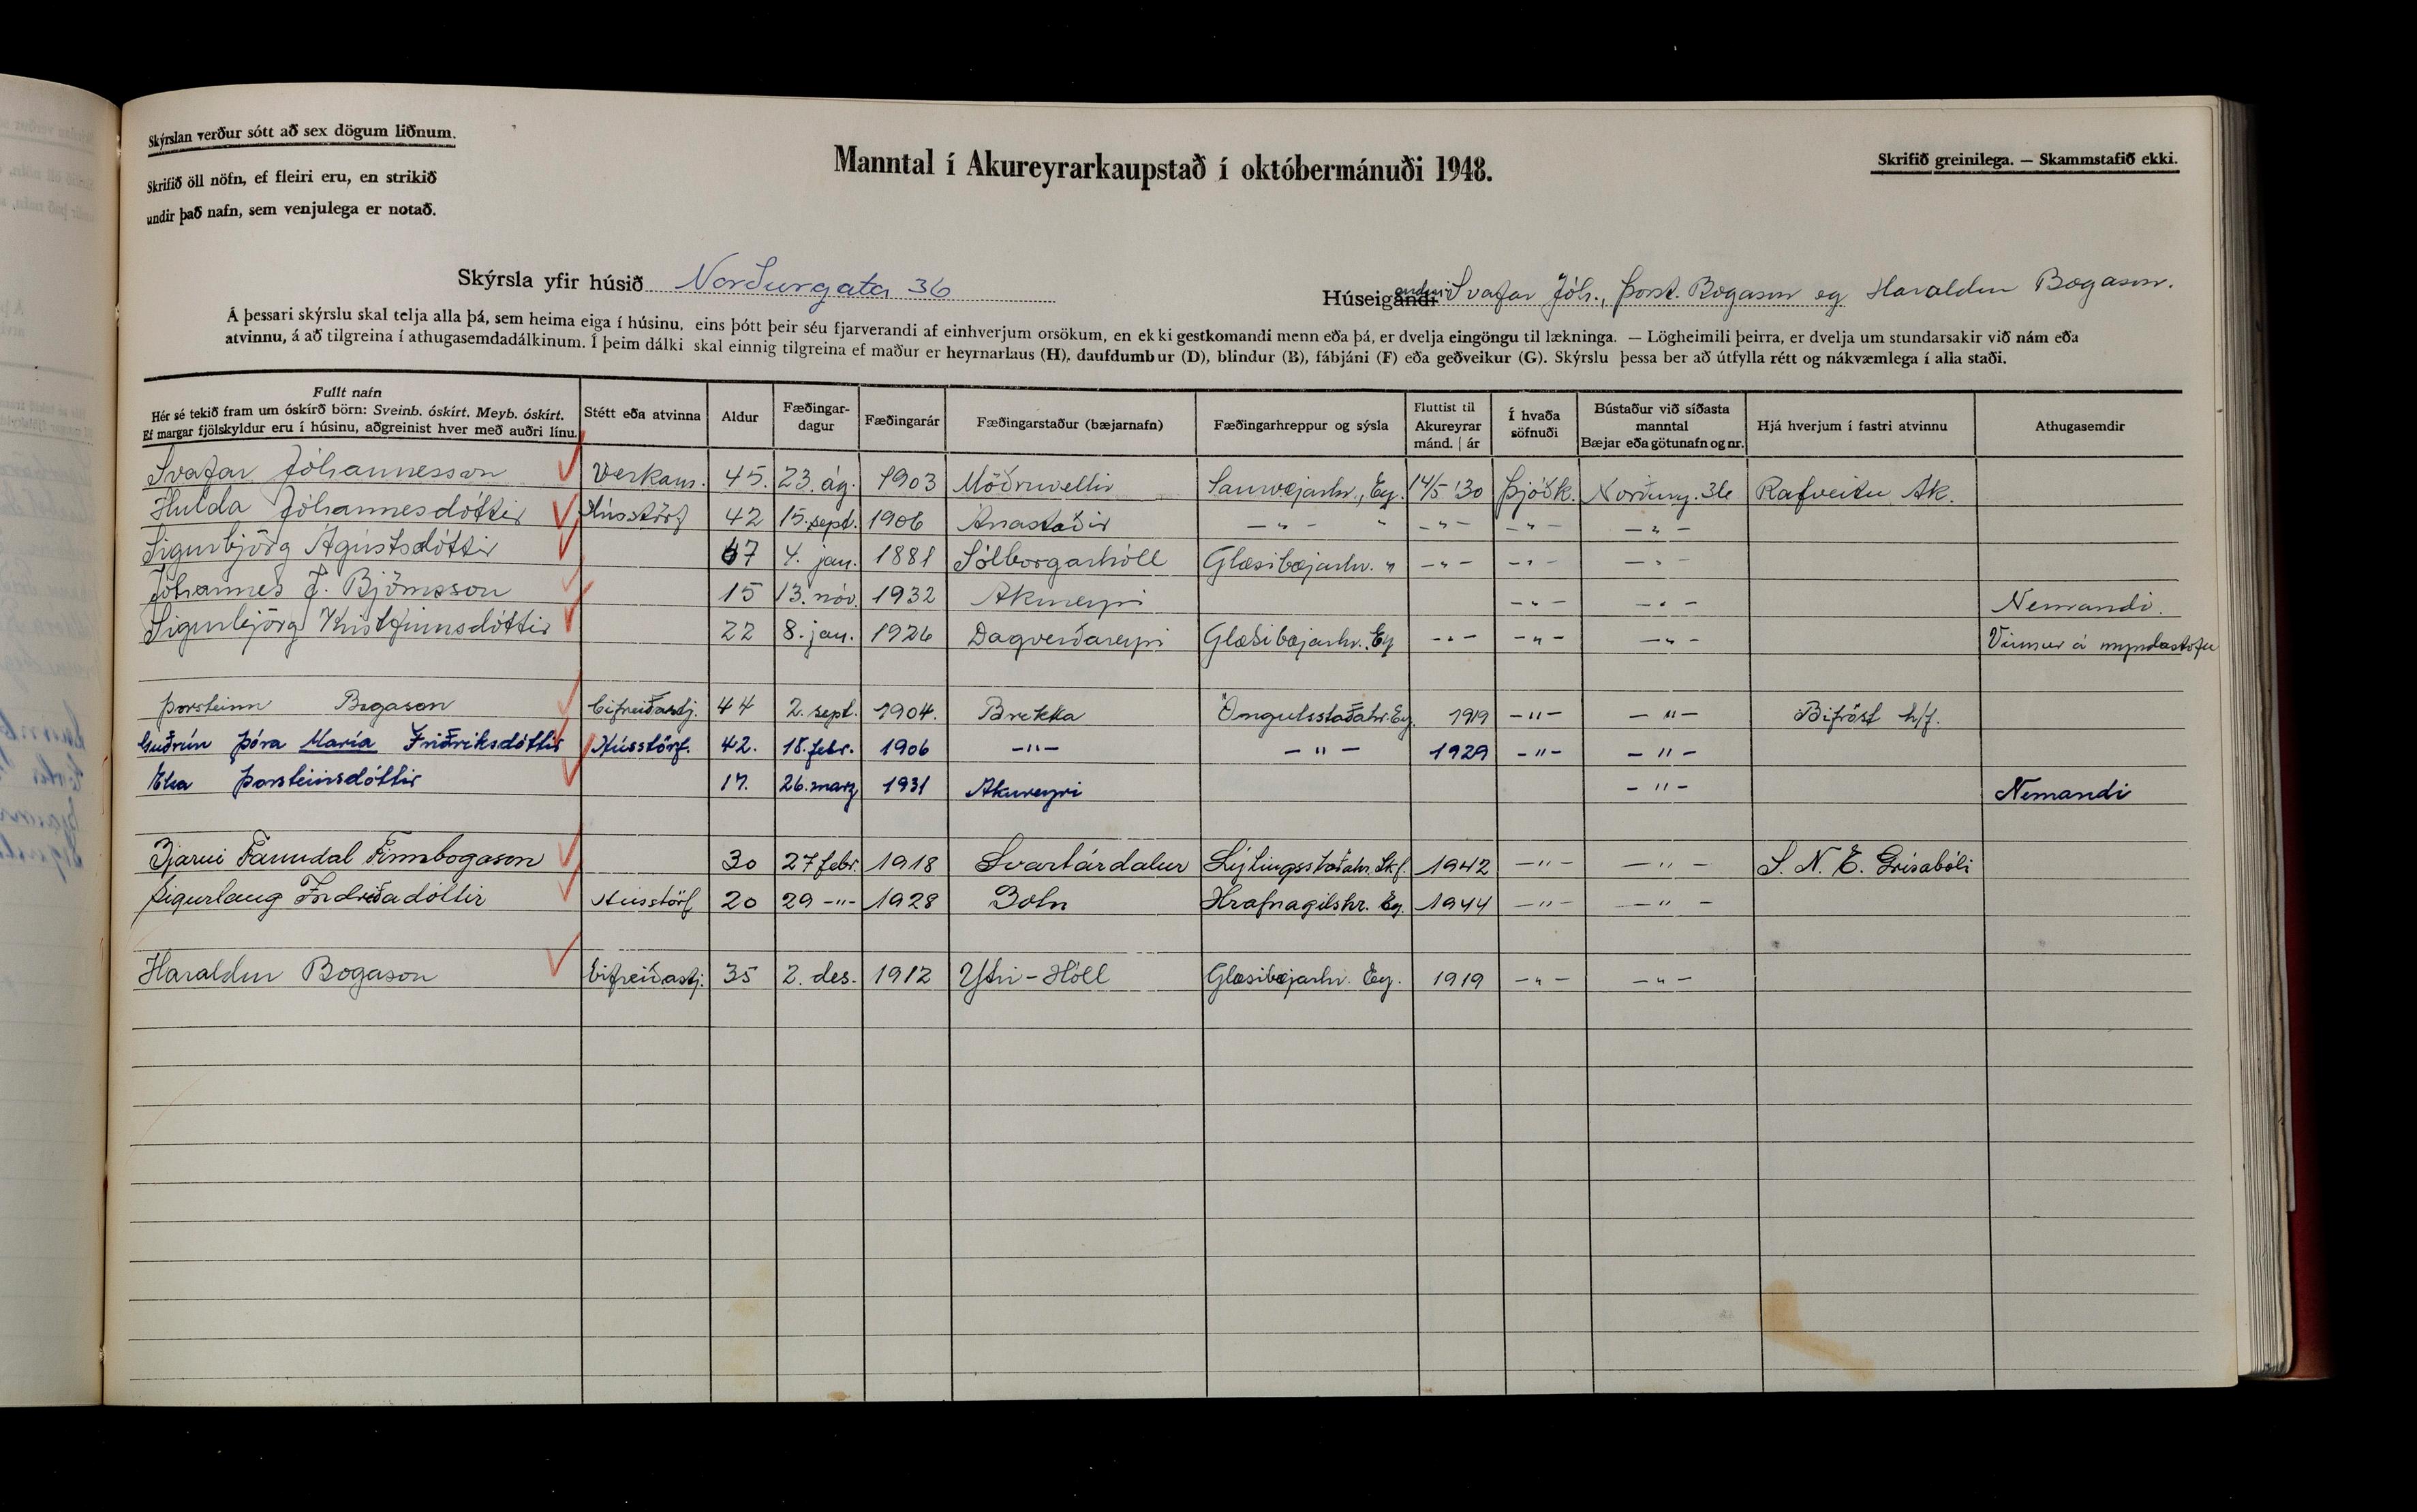 Skýrslan verður sótt að sex dögum liðnum.
Skrifið öll nöfn, ef fleiri eru, en strikið
undir það nafn, sem venjulega er notað.
Manntal í Akureyrarkaupstað í októbermánuði 1948.
Skrifið greinilega. — Skammstafið ekki.
Skýrsla yfir húsið Norðurgata 36
Húseigendur Svafar Jóh., Þorst. Bogason og Haraldur Bogason.
Á þessari skýrslu skal telja alla þá, sem heima eiga í húsinu, eins þótt þeir séu fjarverandi af einhverjum orsökum, en ekki gestkomandi menn eða þá, er dvelja eingöngu til lækninga. — Lögheimili þeirra, er dvelja um stundarsakir við nám eða
atvinnu, á að tilgreina í athugasemdadálkinum. Í þeim dálki skal einnig tilgreina ef maður er heyrnarlaus (H), daufdumbur (D), blindur (B), fábjáni (F) eða geðveikur (G). Skýrslu þessa ber að útfylla rétt og nákvæmlega í alla staði.
Fullt nafn Hér sé tekið fram um óskírð börn: Sveinb. óskírt. Meyb. óskírt. Ef margar fjölskyldur eru í húsinu, aðgreinist hver með auðri línu. Stétt eða atvinna Aldur Fæðingar-dagur Fæðingarár Fæðingarstaður (bæjarnafn) Fæðingarhreppur og sýsla Fluttist til Akureyrar mánd. | ár Í hvaða söfnuði Bústaður við síðasta manntal Bæjar eða götunafn og nr. Hjá hverjum í fastri atvinnu Athugasemdir
Svafar Jóhannesson Verkam. 45. 23. ág. 1903 Möðruvellir Saurbæjarhr., Ey. 14/5 '30 Þjóðk. Norðurg. 36 Rafveitu Ak.
Hulda Jóhannesdóttir Hússtörf 42 15. sept. 1906 Ánastaðir —〃— 〃 —〃— —〃— —〃—
Sigurbjörg Ágústsdóttir 67 4. jan. 1881 Sólborgarhóll Glæsibæjarhr. 〃 —〃— —〃— —〃—
Jóhannes J. Björnsson 15 13. nóv. 1932 Akureyri —〃— —〃— Nemandi.
Sigurbjörg Kristfinnsdóttir 22 8. jan. 1926 Dagverðareyri Glæsibæjarhr. Ey —〃— —〃— —〃— Vinnur á myndastofu
Þorsteinn Bogason bifreiðastj. 44 2. sept. 1904. Brekka Öngulsstaðahr. Ey. 1919 —〃— —〃— Bifröst h/f.
Guðrún Þóra María Friðriksdóttir Hússtörf. 42. 18. febr. 1906 —〃— —〃— 1929 —〃— —〃—
Elsa Þorsteinsdóttir 17. 26. marz 1931 Akureyri —〃— Nemandi
Bjarni Fanndal Finnbogason 30 27 febr. 1918 Svartárdalur Lýtingsstaðahr. Skf. 1942 —〃— —〃— S. N. E. Grísabóli
Sigurlaug Indriðadóttir Hússtörf 20 29 —〃— 1928 Botn Hrafnagilshr. Ey. 1944 —〃— —〃—
Haraldur Bogason bifreiðastj. 35 2. des. 1912 Ytri-Hóll Glæsibæjarhr. Ey. 1919 —〃— —〃—